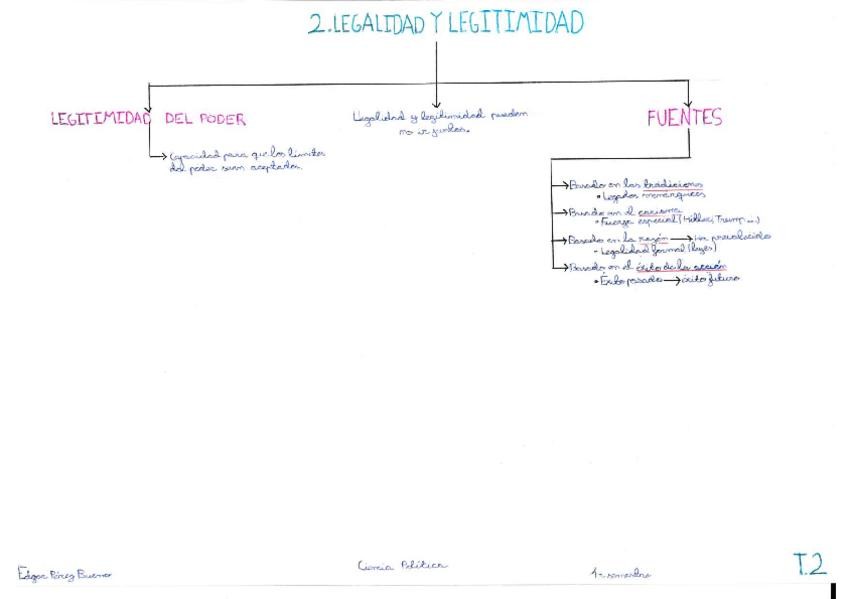 2. LEGALIDAD Y LEGITIMIDAD
LEGITIMIDAD DEL PODER
Capacidad para que los límites
del poder sean aceptados.
Legalidad y legitimidad pueden
no ir juntas.
FUENTES
Basado en las tradiciones
• Legados monárquicos
Basado en el carisma
• Fuerza especial (Hitler, Trump...)
Basado en la razón → Ha prevalecido
- Legalidad formal (leyes)
Basado en el éxito de la acción
• Éxito pasado → éxito futuro
Edgar Pérez Bueno
Ciencia Política
semestre
T.2